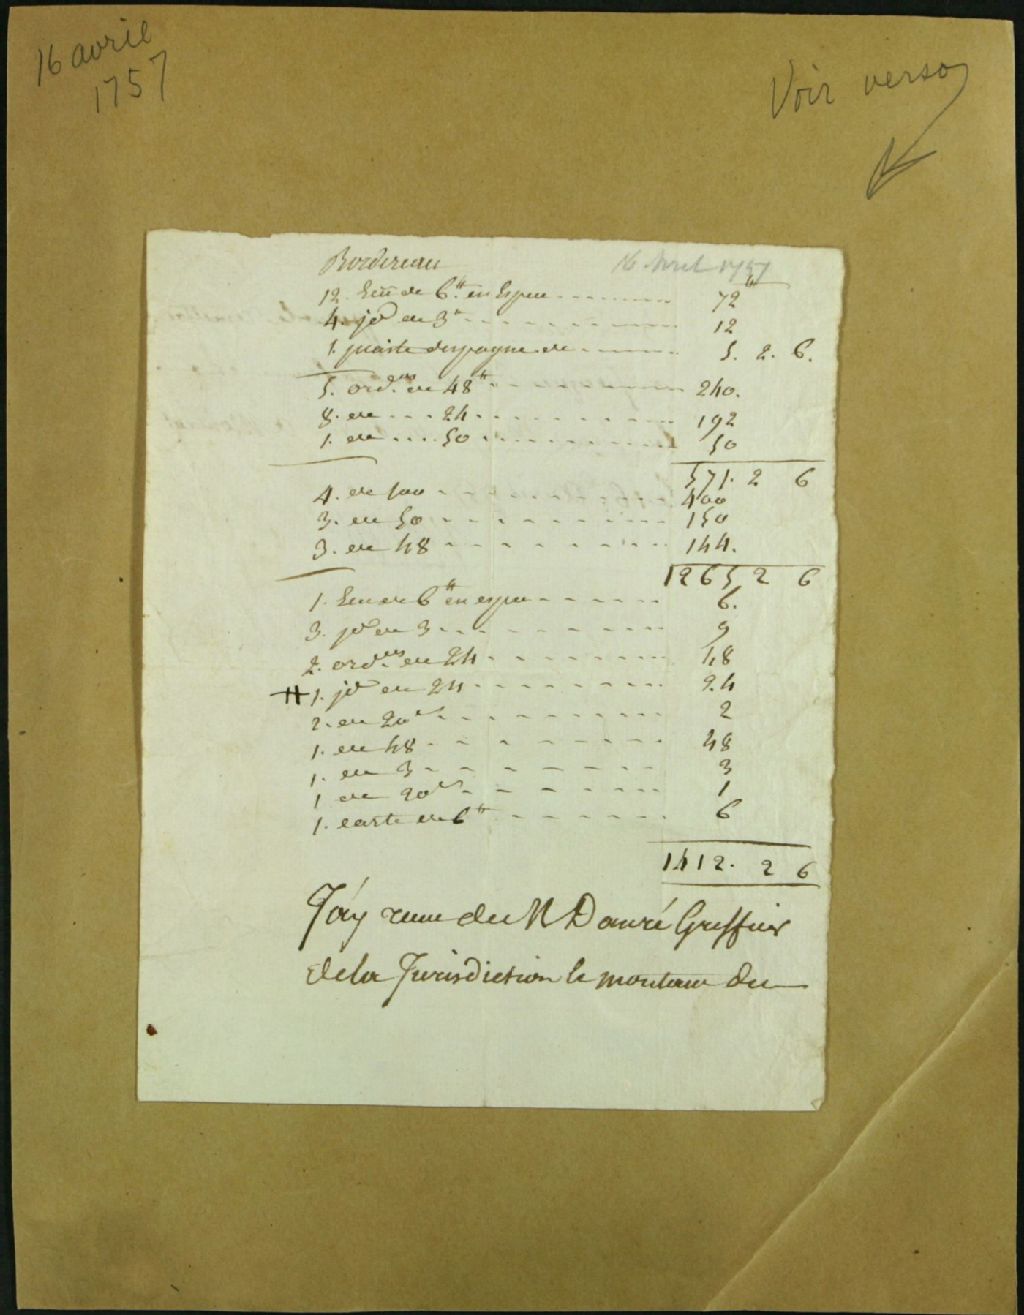 16 avril
1757
Voir verso
Bordereau
16 Avril 1757
12. Ecu de 6.tt en Espece 72tt
4. jd de 3tt 12
1. piaste despagne de 5. 2. 6.
5. ord.res de 48tt 240.
8. de 24 192
1. de 50 50
571. 2 6
4. de 100 400
3. de 50 150
3. de 48 144.
1265 2 6
1. Ecu de 6tt en espece 6.
3. jd de 3 9
2. ord.res de 24 48
1. jd de 24 24
2. de 20s 2
1. de 48 48
1. de 3 3
1 de 20s 1
1. carte de 6tt 6
1412. 2 6
J'ay receu de Mr Dauré Greffier
de la Jurisdiction le montant du